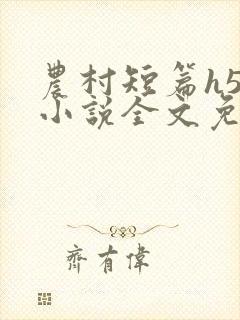 農村短篇h5
小說全文免
齊有偉